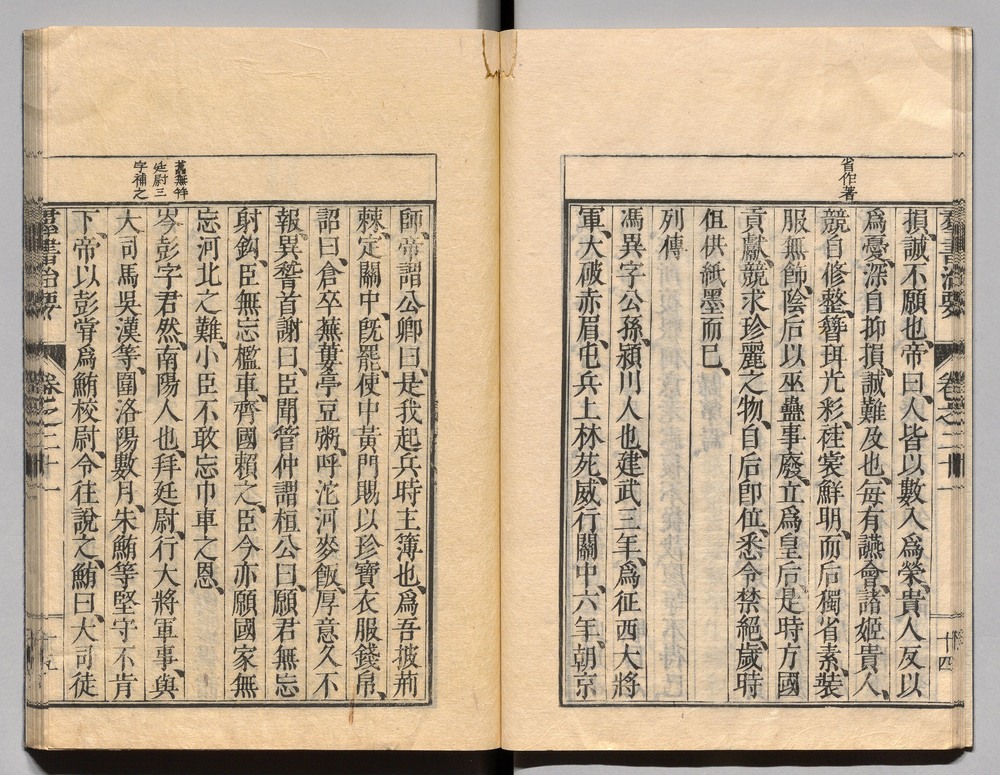 省作著
損誠不願也帝曰人皆以數入爲榮貴人反以
爲憂深自抑損誠難及也每有讌會諸姬貴人
競自修整簪珥光彩袿裳鮮明而后獨省素裝
服無飾陰后以巫蠱事廢立爲皇后是時方國
貢獻競求珍麗之物自后即位悉令禁絕歲時
但供紙墨而已
列傳
馮異字公孫潁川人也建武三年爲征西大將
軍大破赤眉屯兵上林苑威行關中六年朝京
師帝謂公卿曰是我起兵時主簿也爲吾披荊
棘定關中既罷使中黃門賜以珍寶衣服錢帛
詔曰倉卒蕪蔞亭豆粥呼沱河麥飯厚意久不
報異稽首謝曰臣聞管仲謂桓公曰願君無忘
射鉤臣無忘檻車齊國賴之臣今亦願國家無
忘河北之難小臣不敢忘巾車之恩
岑彭字君然南陽人也拜廷尉行大將軍事與
大司馬吳漢等圍洛陽數月朱鮪等堅守不肯
下帝以彭甞爲鮪校尉令往說之鮪曰大司徒
舊無
廷尉三
字補之
群書治要
卷之二十一
十四